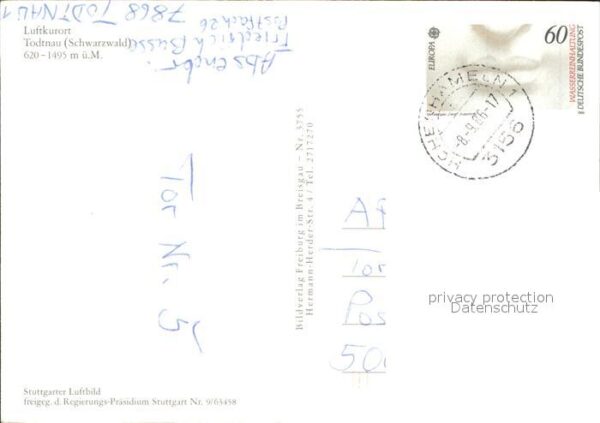 Luftkurort
Todtnau (Schwarzwald)
620–1495 m ü.M.
Absender:
Friedrich Busse
Postfach 26
7868 TODTNAU 1
Tor Nr. 5
Bildverlag Freiburg im Breisgau – Nr. 3755
Hermann-Herder-Str. 4 / Tel. 2717270
EUROPA
60
WASSERREINHALTUNG
DEUTSCHE BUNDESPOST
HOHENHAMELN 1
-8.9.86-17
3156
Af
Tor
Pos
500
privacy protection
Datenschutz
Stuttgarter Luftbild
freigeg. d. Regierungs-Präsidium Stuttgart Nr. 9/63458